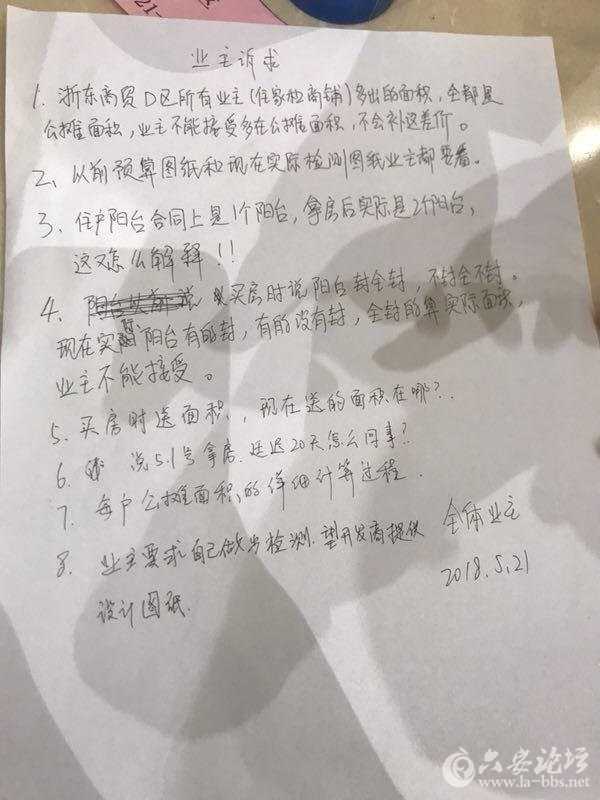 21-
业主诉求
1. 浙东商贸D区所有业主(住家和商铺)多出的面积,全都是
公摊面积,业主不能接受多在公摊面积,不会补这差价。
2、以前预算图纸和现在实际检测图纸业主都要看。
3、住户阳台合同上是1个阳台,拿房后实际是2个阳台,
这又怎么解释!!
4、买房时说阳台封全封,不封全不封。
现在实际阳台有的封,有的没有封,全封的算实际面积,
业主不能接受。
5、买房时送面积,现在送的面积在哪?
6、说5.1号拿房.延迟20天怎么回事?
7、每户公摊面积的详细计算过程.
8、业主要求自己做步检测.望开发商提供
设计图纸.
全体业主
2018.5.21
六安论坛
www.la-bbs.net